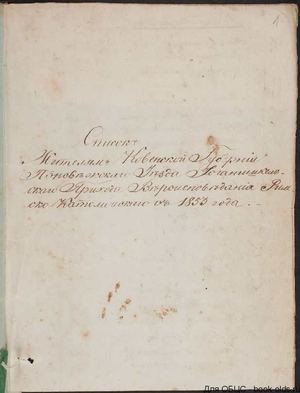 1
Списокъ
Жителямъ Ковенской Губерніи
Поневѣжскаго Уѣзда Іоганишкель-
скаго Прихода Вѣроисповѣданія Рим-
ско Католискаго съ 1853 года.
Для ОБЦС - book-olds.ru